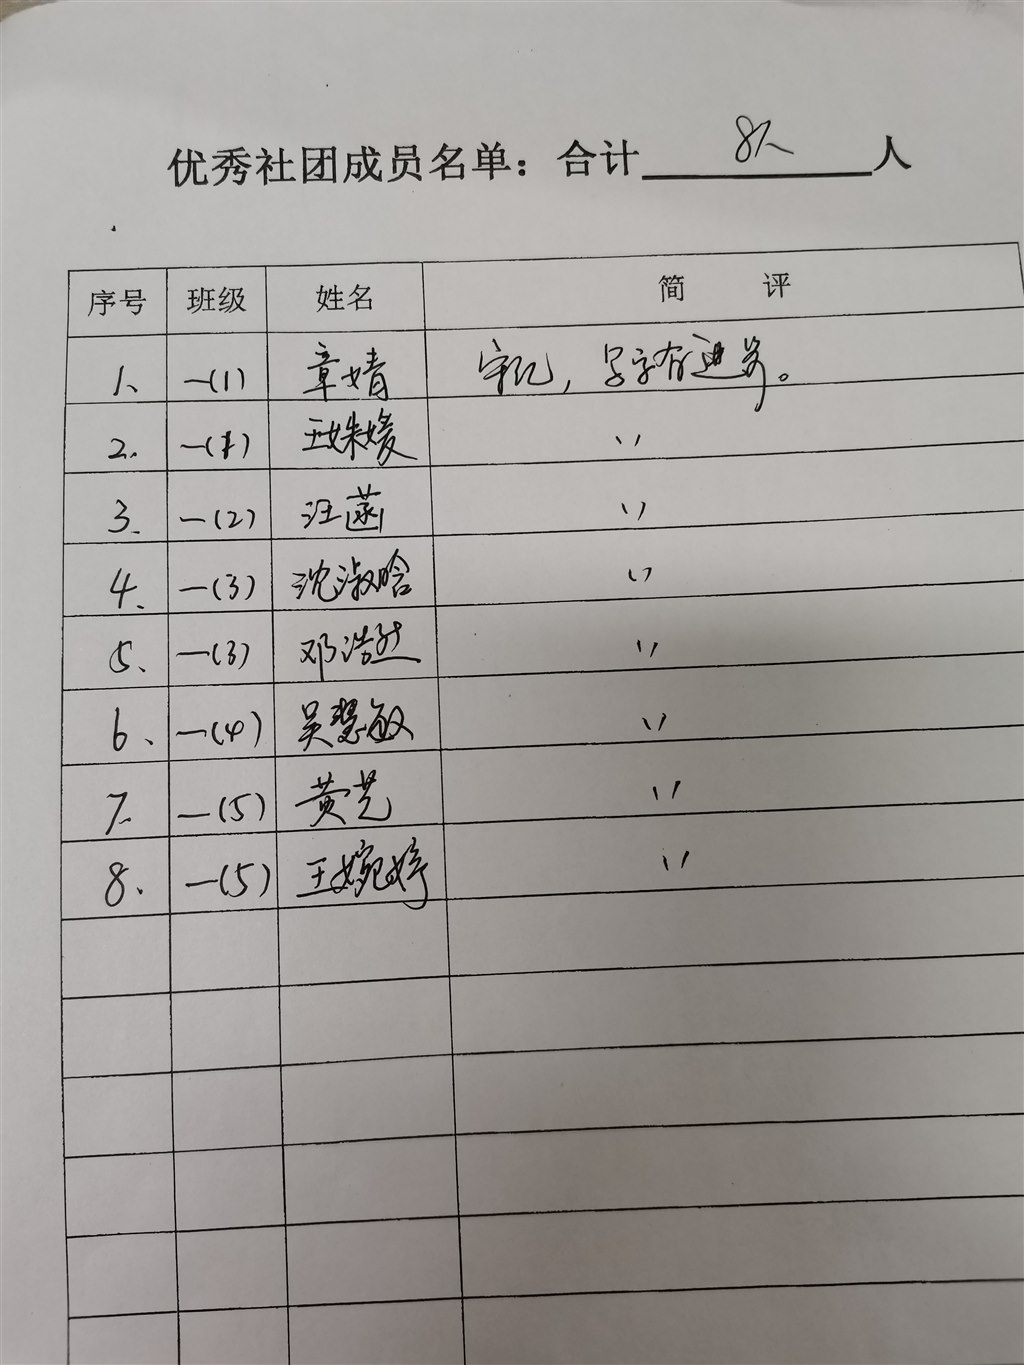 优秀社团成员名单：合计 8人 人
序号 班级 姓名 简 评
1、 一(1) 章婧 守纪，写字有进步。
2. 一(1) 王姝媛 〃
3. 一(2) 汪菡 〃
4、 一(3) 沈淑晗 〃
5、 一(3) 邓浩然 〃
6、 一(4) 吴慧敏 〃
7. 一(5) 黄芝 〃
8. 一(5) 王婉婷 〃